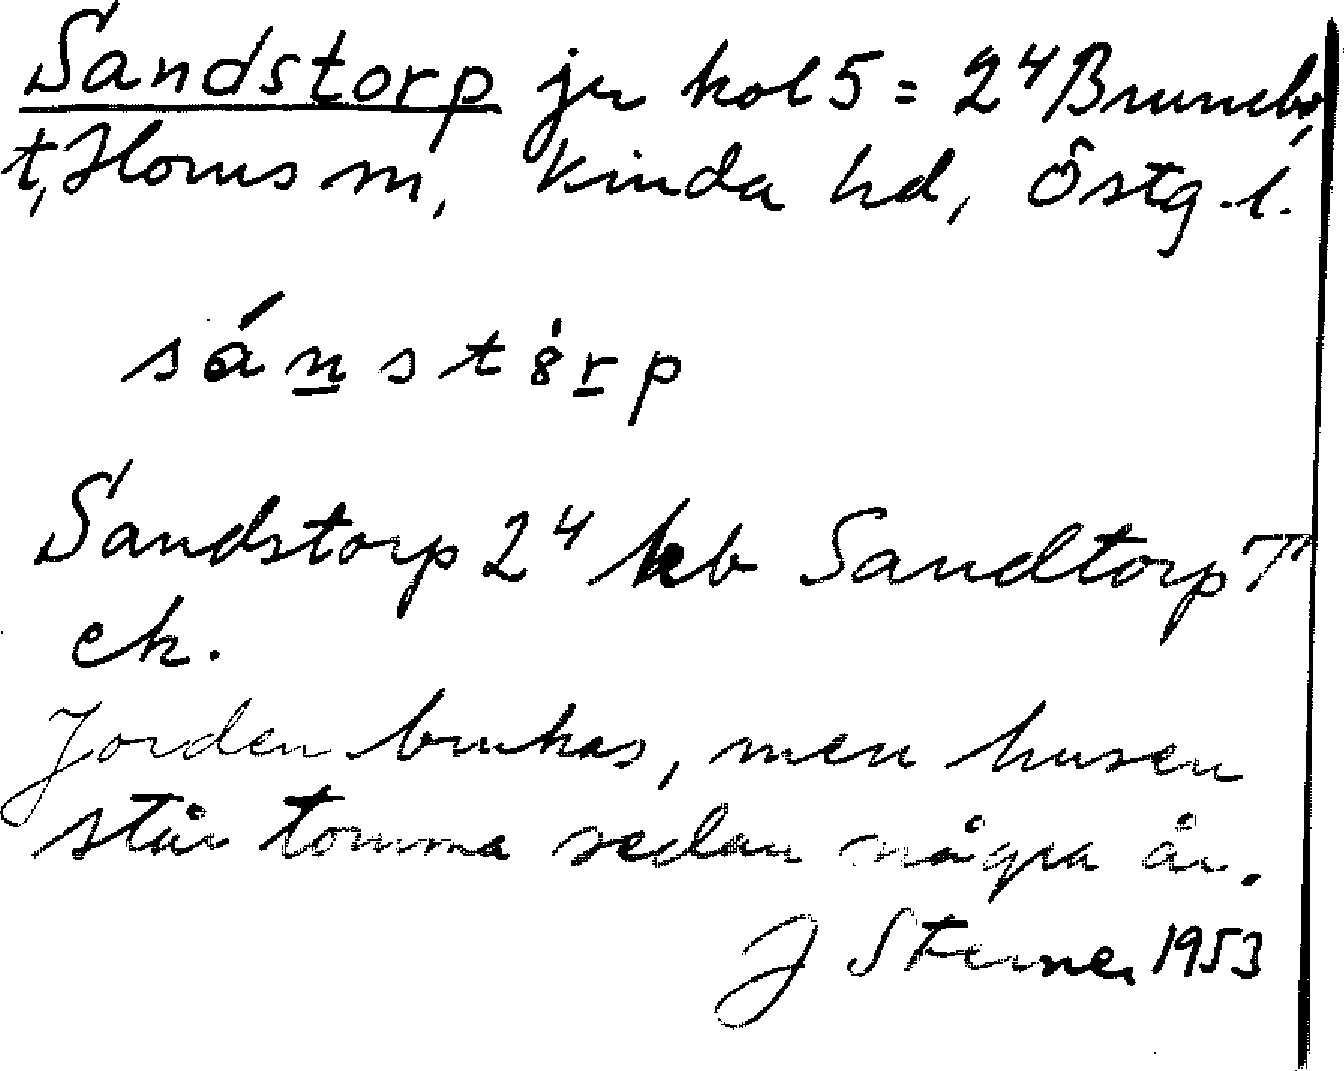 Sandstorp jr kol 5 = 2⁴ Brunebo,
t, Horns sn, Kinda hd, Östg. l.
sánstȯrp
Sandstorp 2⁴ kb Sandtorp T
ek.
Jorden brukas, men husen
står tomma sedan några år.
J Sterner 1953